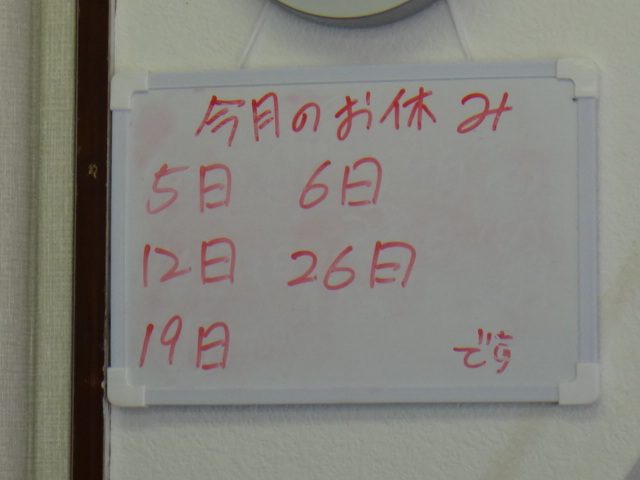 今月のお休み
5日 6日
12日 26日
19日 です